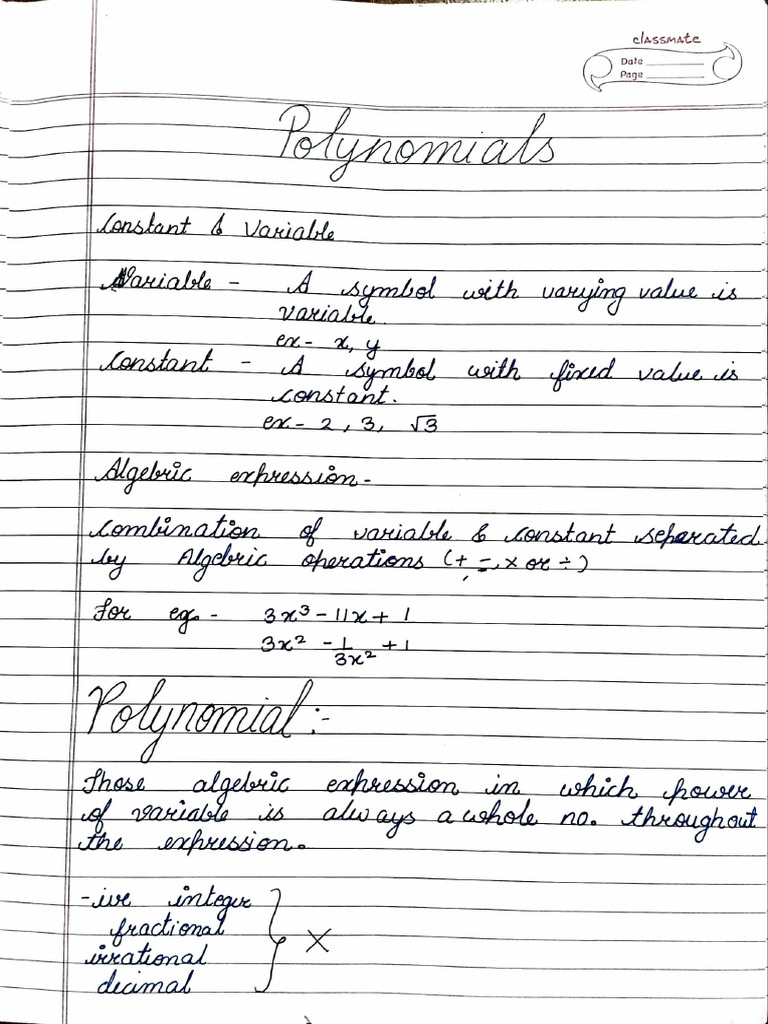 classmate
Date
Page
Polynomials
Constant & Variable
Variable - A symbol with varying value is
variable.
ex- x, y
Constant - A symbol with fixed value is
constant.
ex- 2, 3, √3
Algebric expression-
Combination of variable & constant separated
by Algebric operations (+, -, × or ÷)
For eg. - 3x³ - 11x + 1
3x² - 1/3x² + 1
Polynomial :-
Those algebric expression in which power
of variable is always a whole no. throughout
the expression.
-ive integer
fractional
irrational
decimal
} ×